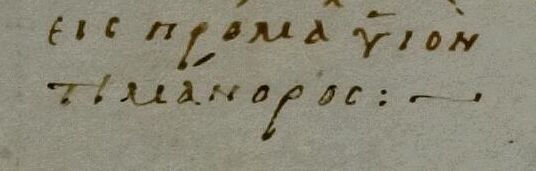 εις πρόμα ὑιὸν
τιμάνορος :—